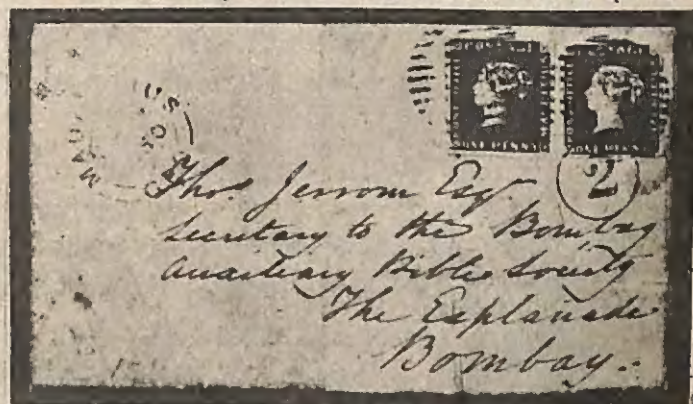 POSTAGE
ONE PENNY
ONE PENNY
2
Thos. Jerrom Esqr.
Secretary to the Bombay
Auxiliary Bible Society
The Esplanade
Bombay.